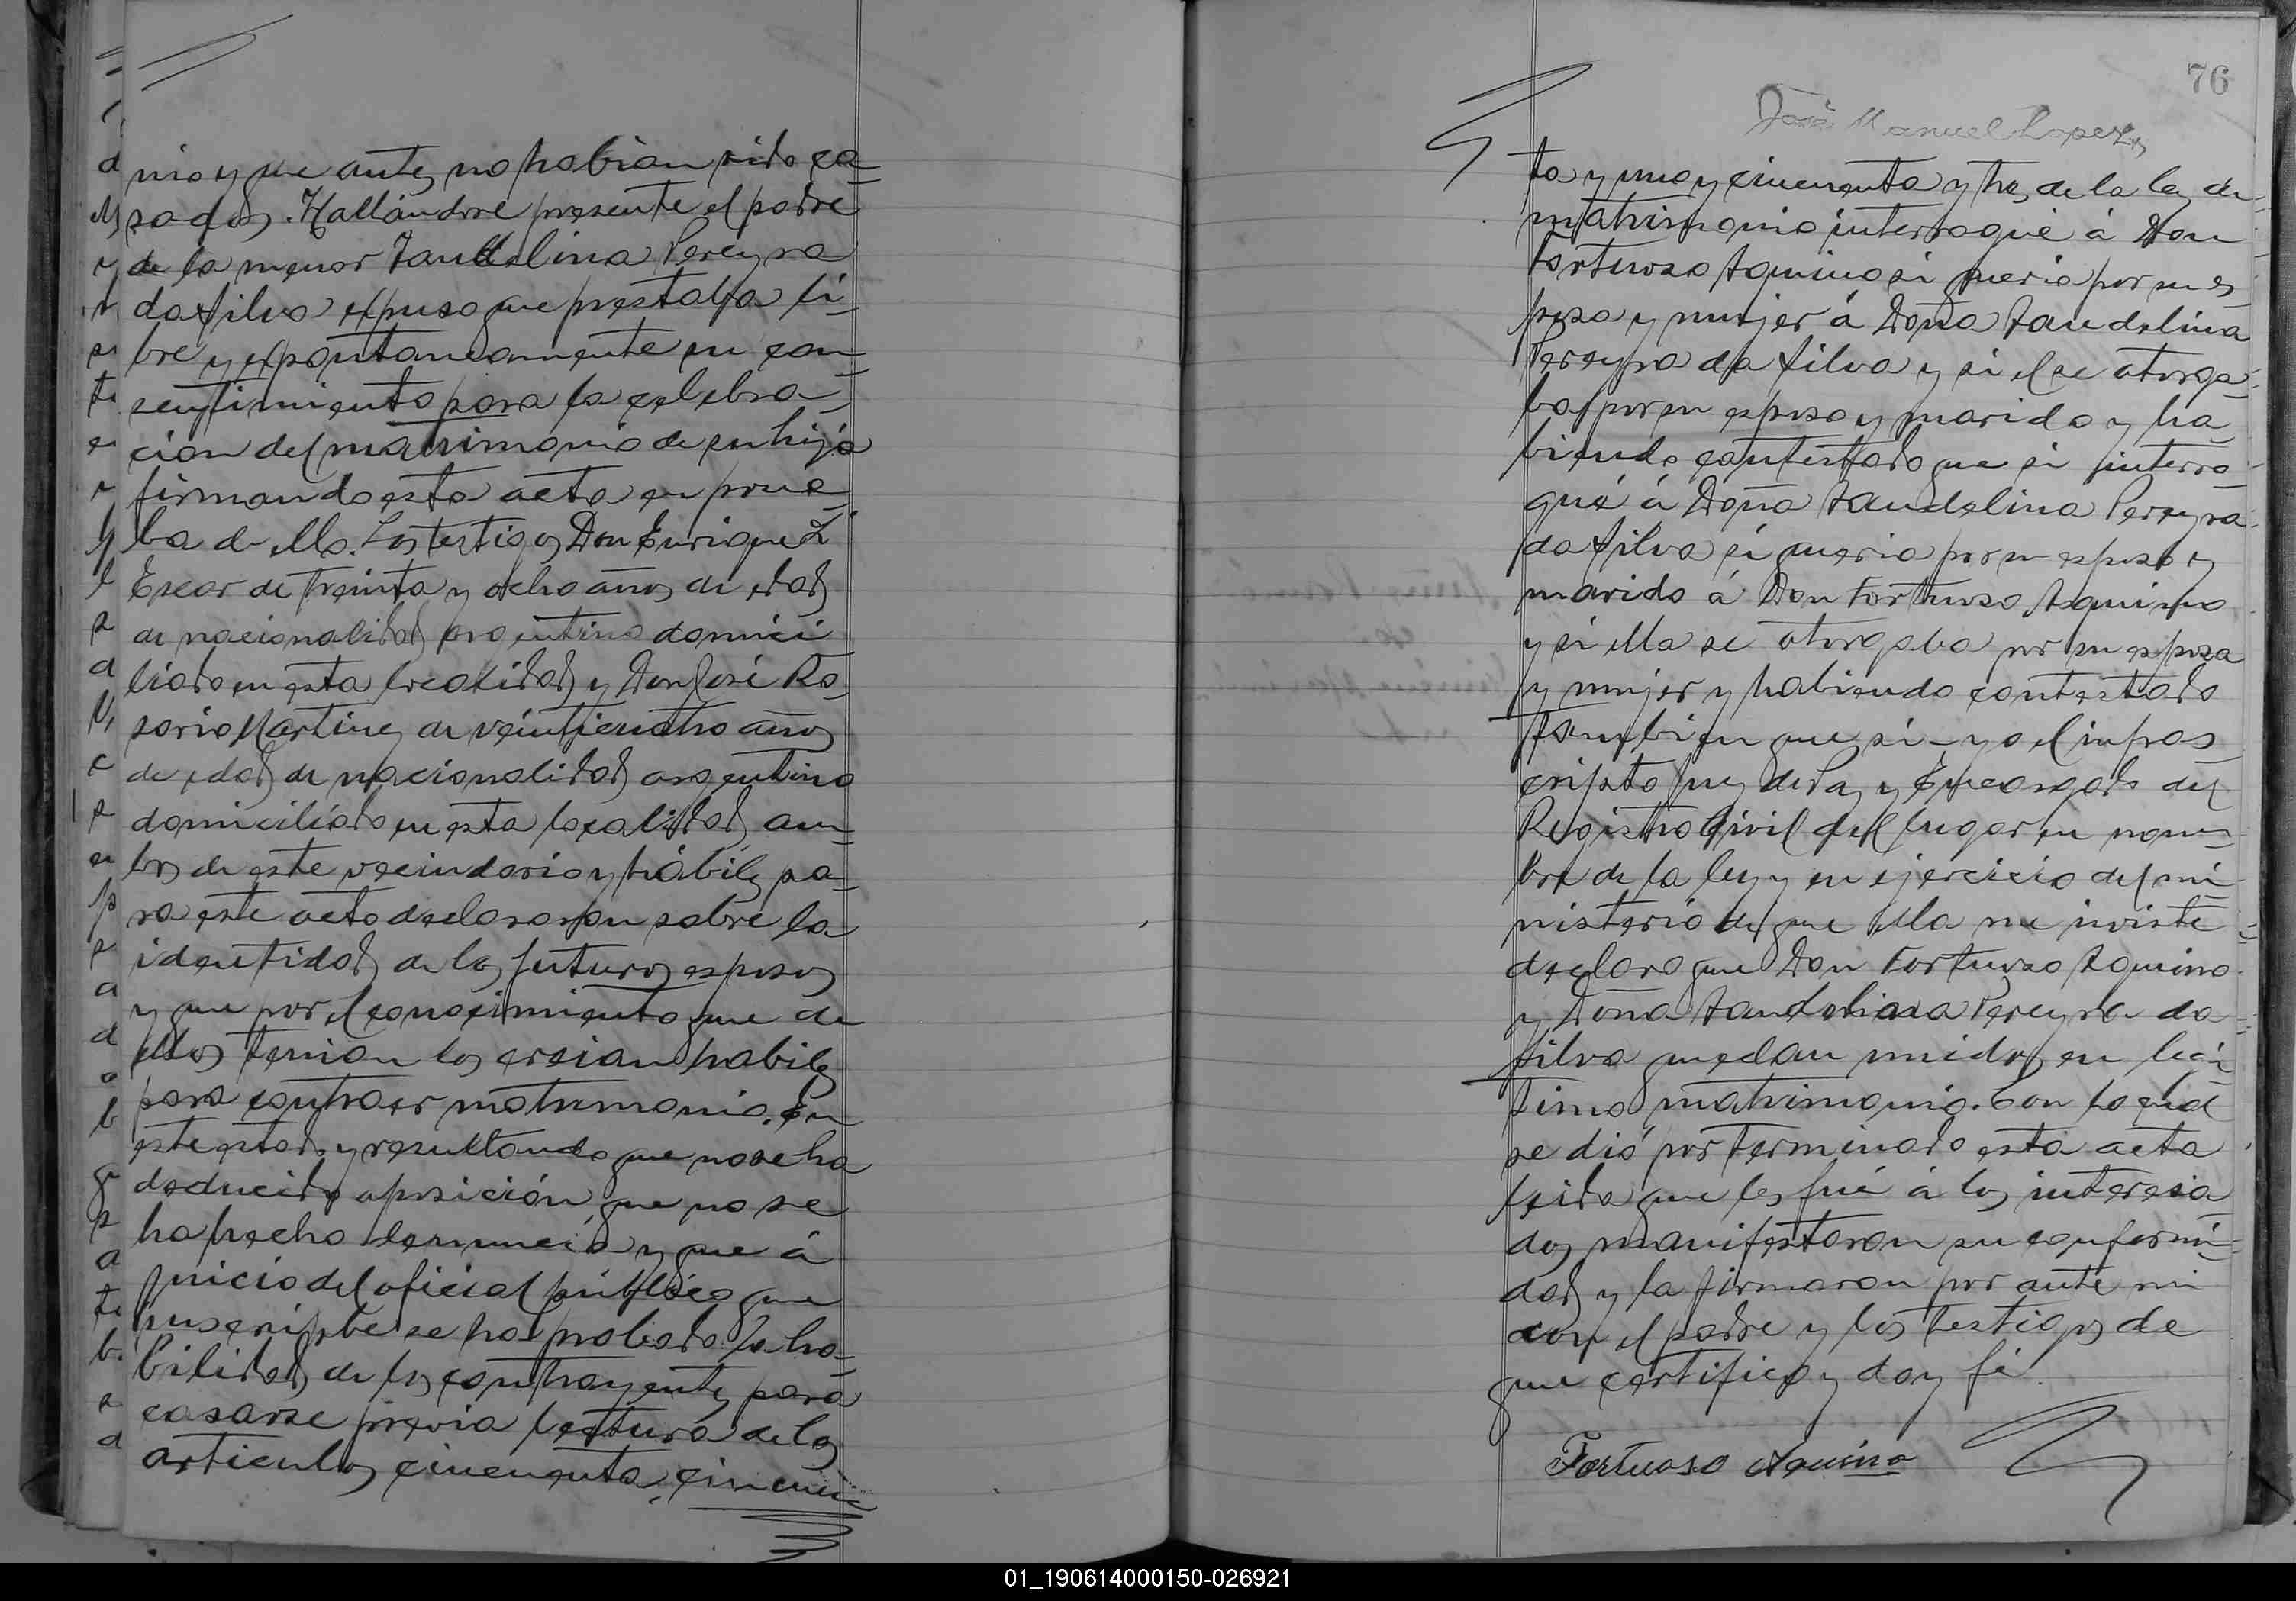 nio y que antes no habian sido ca=
sados. Hallándose presente el padre
de la menor Laudelina Pereyra
da Silva expuso que prestaba li=
bre y espontaneamente su con=
sentimiento para la celebra=
ción del matrimonio de su hija
firmando esta acta en prue=
ba de ello. Los testigos Don Enrique L
Escar de treinta y ocho años de edad
de nacionalidad argentino domici
liado en esta localidad y Don José Ro
sario Martinez de veinticuatro años
de edad de nacionalidad argentino
domiciliado en esta localidad, am=
bos de este vecindario y hábiles pa=
ra este acto declararon sobre la
identidad de los futuros esposos
y que por el conocimiento que de
ellos tenian los creian habiles
para contraer matrimonio. En
este estado y resultando que no se ha
deducido oposición, que no se
ha hecho denuncia y que á
juicio del oficial público que
suscribe se ha probado la ha=
bilidad de los contrayentes para
casarse previa lectura de los
articulos cincuenta, cincuen
76
José Manuel Lopez
ta y uno y cincuenta y tres de la ley de
matrimonio interrogué á Don
Fortuoso Aquino si queria por su es
posa y mujer á Doña Laudelina
Pereyra da Silva y si el se otorga=
ba por su esposo y marido y ha
biendo contestado que si interro=
gué á Doña Laudelina Pereyra
da Silva si queria por su esposo y
marido á Don Fortuoso Aquino
y si ella se otorgaba por su esposa
y mujer y habiendo contestado
tambien que si - yo el infras
cripto Juez de Paz y Encargado del
Registro Civil del lugar en nom=
bre de la ley y en ejercicio del mi
nisterio de que ella me inviste
declaro que Don Fortuoso Aquino
y Doña Laudelina Pereyra da
Silva quedan unidos en legi
timo matrimonio. Con lo cual
se dió por terminado esta acta
leida que les fué á los interesa
dos manifestaron su conformi=
dad y la firmaron por ante mi
con el padre y los testigos de
que certifico y doy fé.
Fortuoso Aquino
01_190614000150-026921